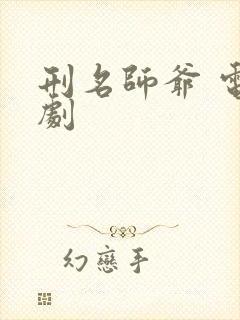 刑名師爺 電
劇
幻戀手